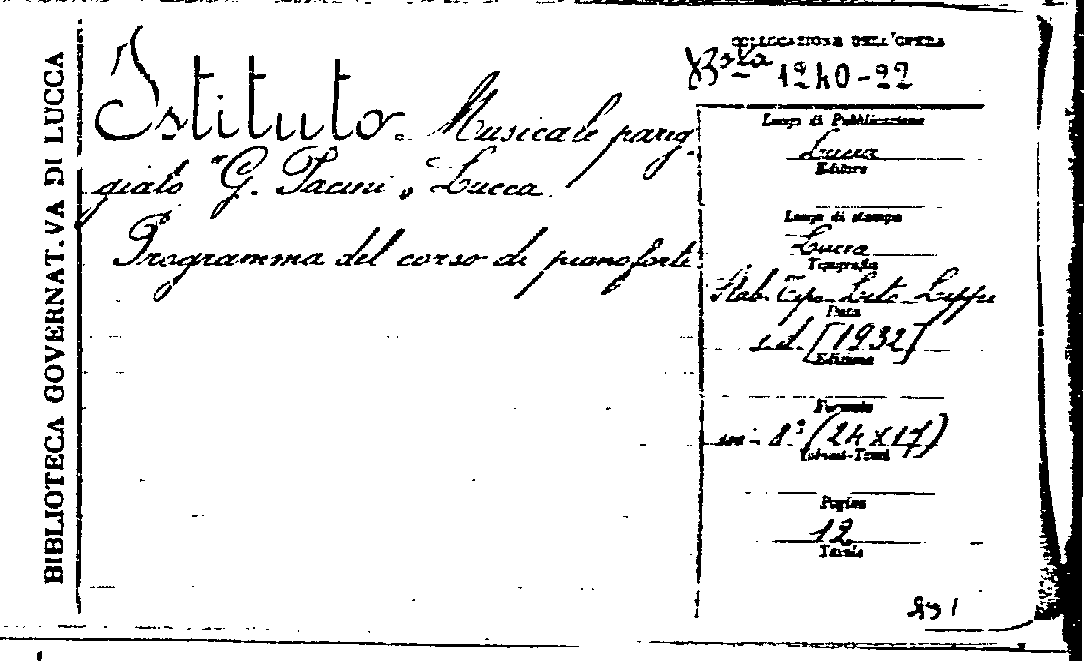 BIBLIOTECA GOVERNAT.VA DI LUCCA
Istituto Musicale pareg-
giato "G. Pacini" Lucca
Programma del corso di pianoforte
COLLOCAZIONE DELL'OPERA
Bsta 1240-22
Luogo di Pubblicazione
Lucca
Editore
Luogo di stampa
Lucca
Tipografia
Stab. Tipo Lito Lippi
Data
s.d. [1932]
Edizione
Formato
in-8º (24x17)
Volumi-Tomi
Pagine
12
Tavole